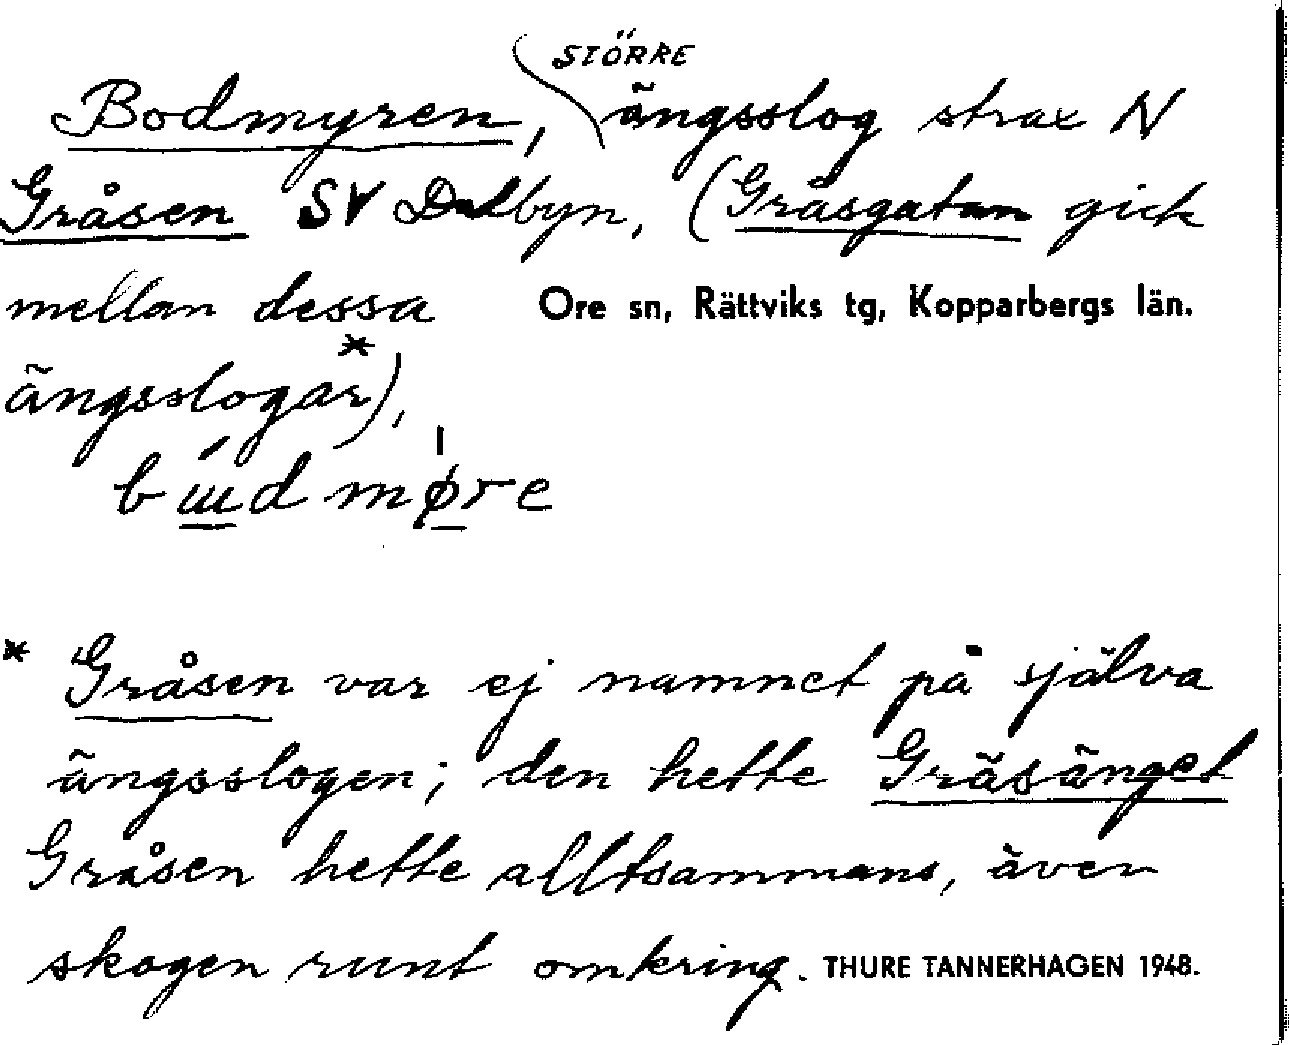 STÖRRE
Bodmyren, ängsslog strax N
Gråsen SV Dalbyn, (Gråsgatan gick
mellan dessa Ore sn, Rättviks tg, Kopparbergs län.
ängsslogar*),
bɯ́dmø̍re
* Gråsen var ej namnet på själva
ängsslogen; den hette Gräsänget
Gråsen hette alltsammans, även
skogen runt omkring. THURE TANNERHAGEN 1948.